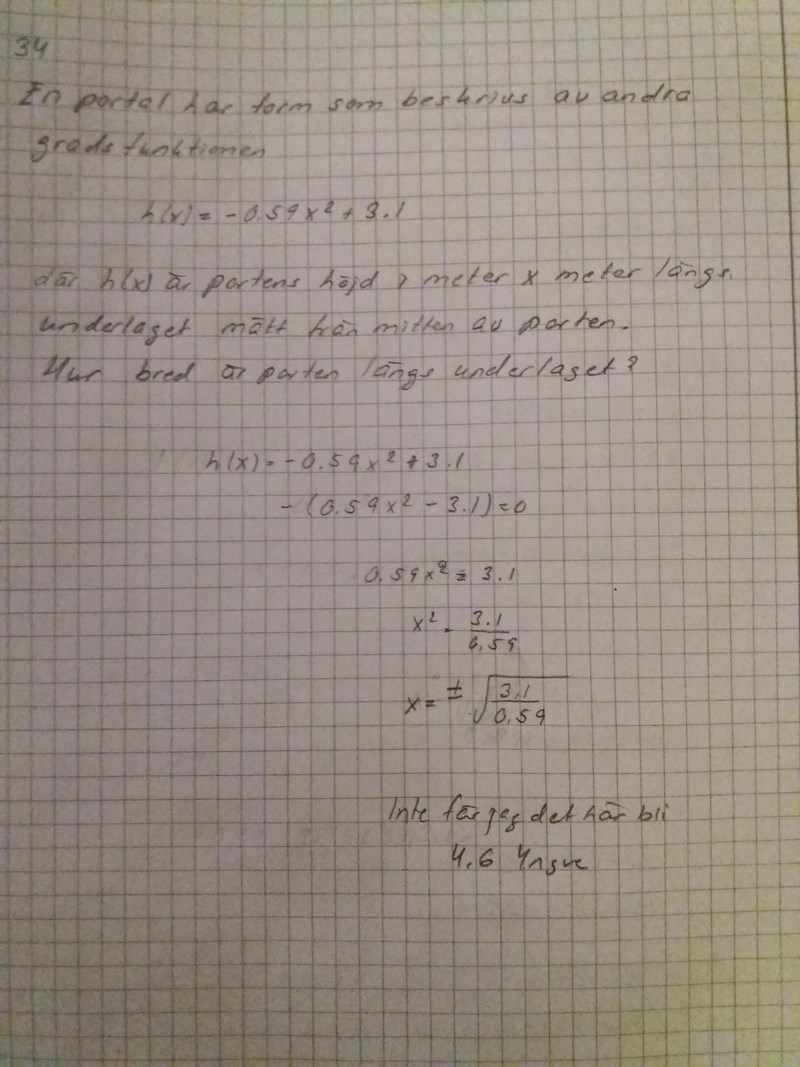 34
En portal har form som beskrivs av andra
grads funktionen
h(x) = -0.59x² + 3.1
där h(x) är portens höjd i meter x meter längs
underlaget mätt från mitten av porten.
Hur bred är porten längs underlaget?
h(x) = -0.59x² + 3.1
-(0.59x² - 3.1) = 0
0.59x² = 3.1
x² = 3.1/0.59
x = ± √(3.1/0.59)
Inte får jag det här bli
4.6 Yngve